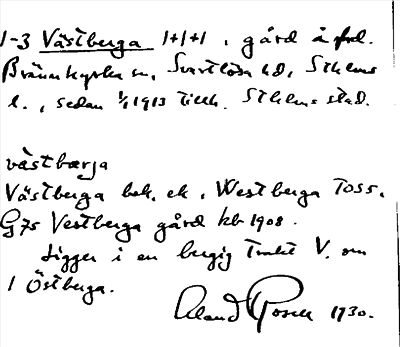 1-3 Västberga 1+1+1, gård i frd.
Brännkyrka sn, Svartlösa hd, Sthlms
l., sedan 1/1 1913 tillh. Sthlms stad.
västbærja
Västberga bok. ek, Westberga Toss.
G 75 Vestberga gård kb 1908.
Ligger i en bergig trakt V. om
1 Östberga.
Roland Rosell 1930.